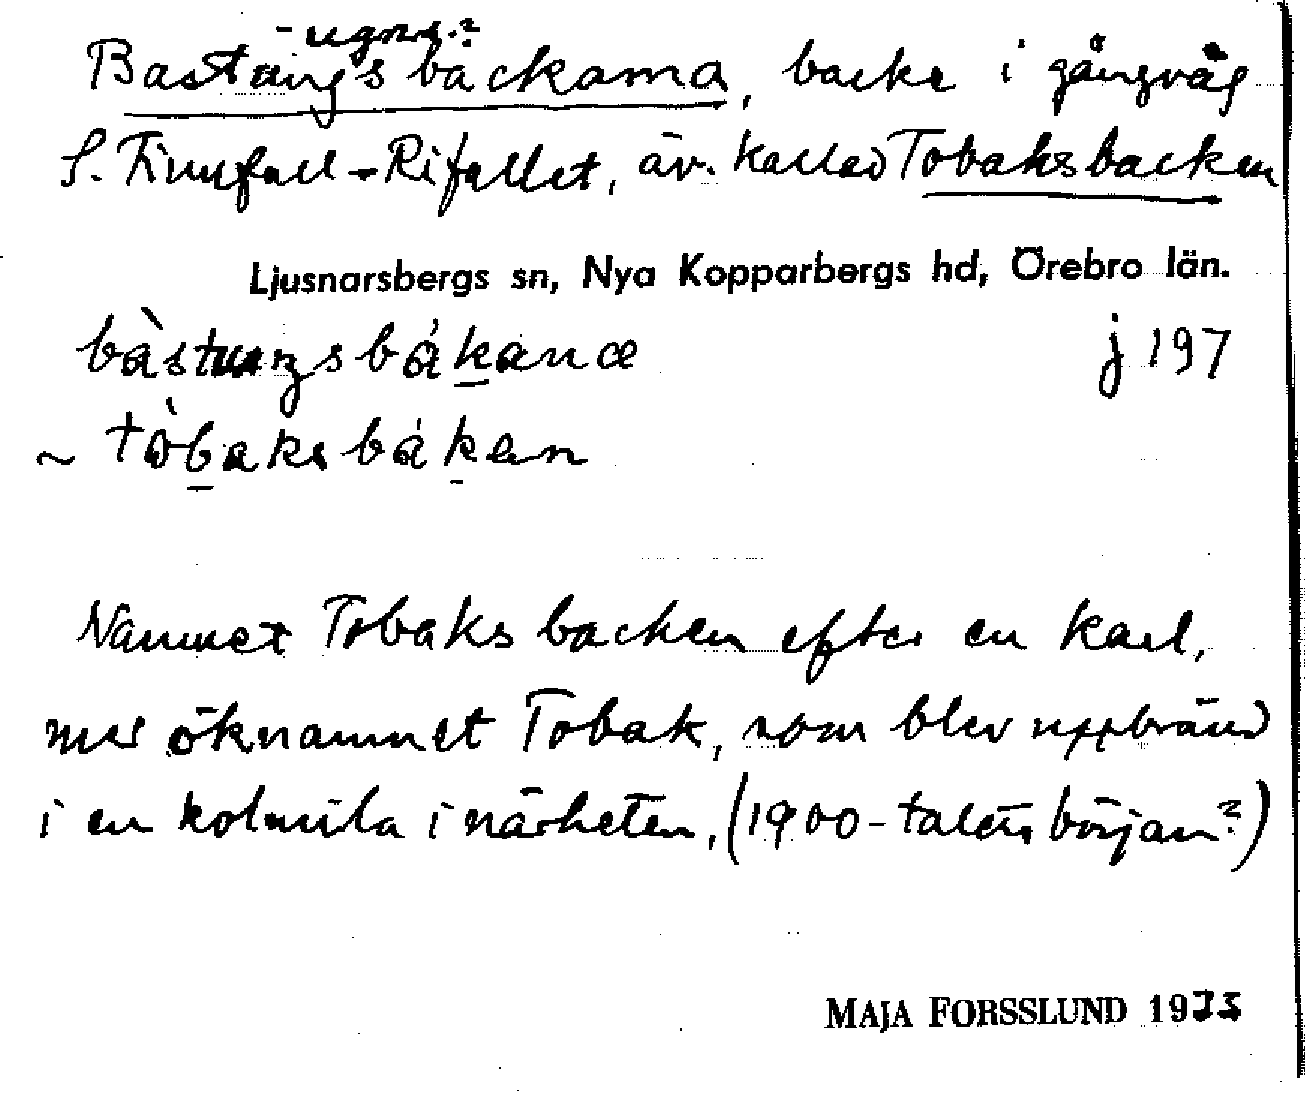 -ugns-?
Bastungsbackarna, backe i gångväg
S. Finnfall - Rifallet, äv. kallad Tobaksbacken
Ljusnarsbergs sn, Nya Kopparbergs hd, Örebro län.
bàstuŋsbákanæ j 197
~ tòbaksbáken
Namnet Tobaksbacken efter en karl,
med öknamnet Tobak, som blev uppbränd
i en kolmila i närheten, (1900-talets början?)
MAJA FORSSLUND 1935